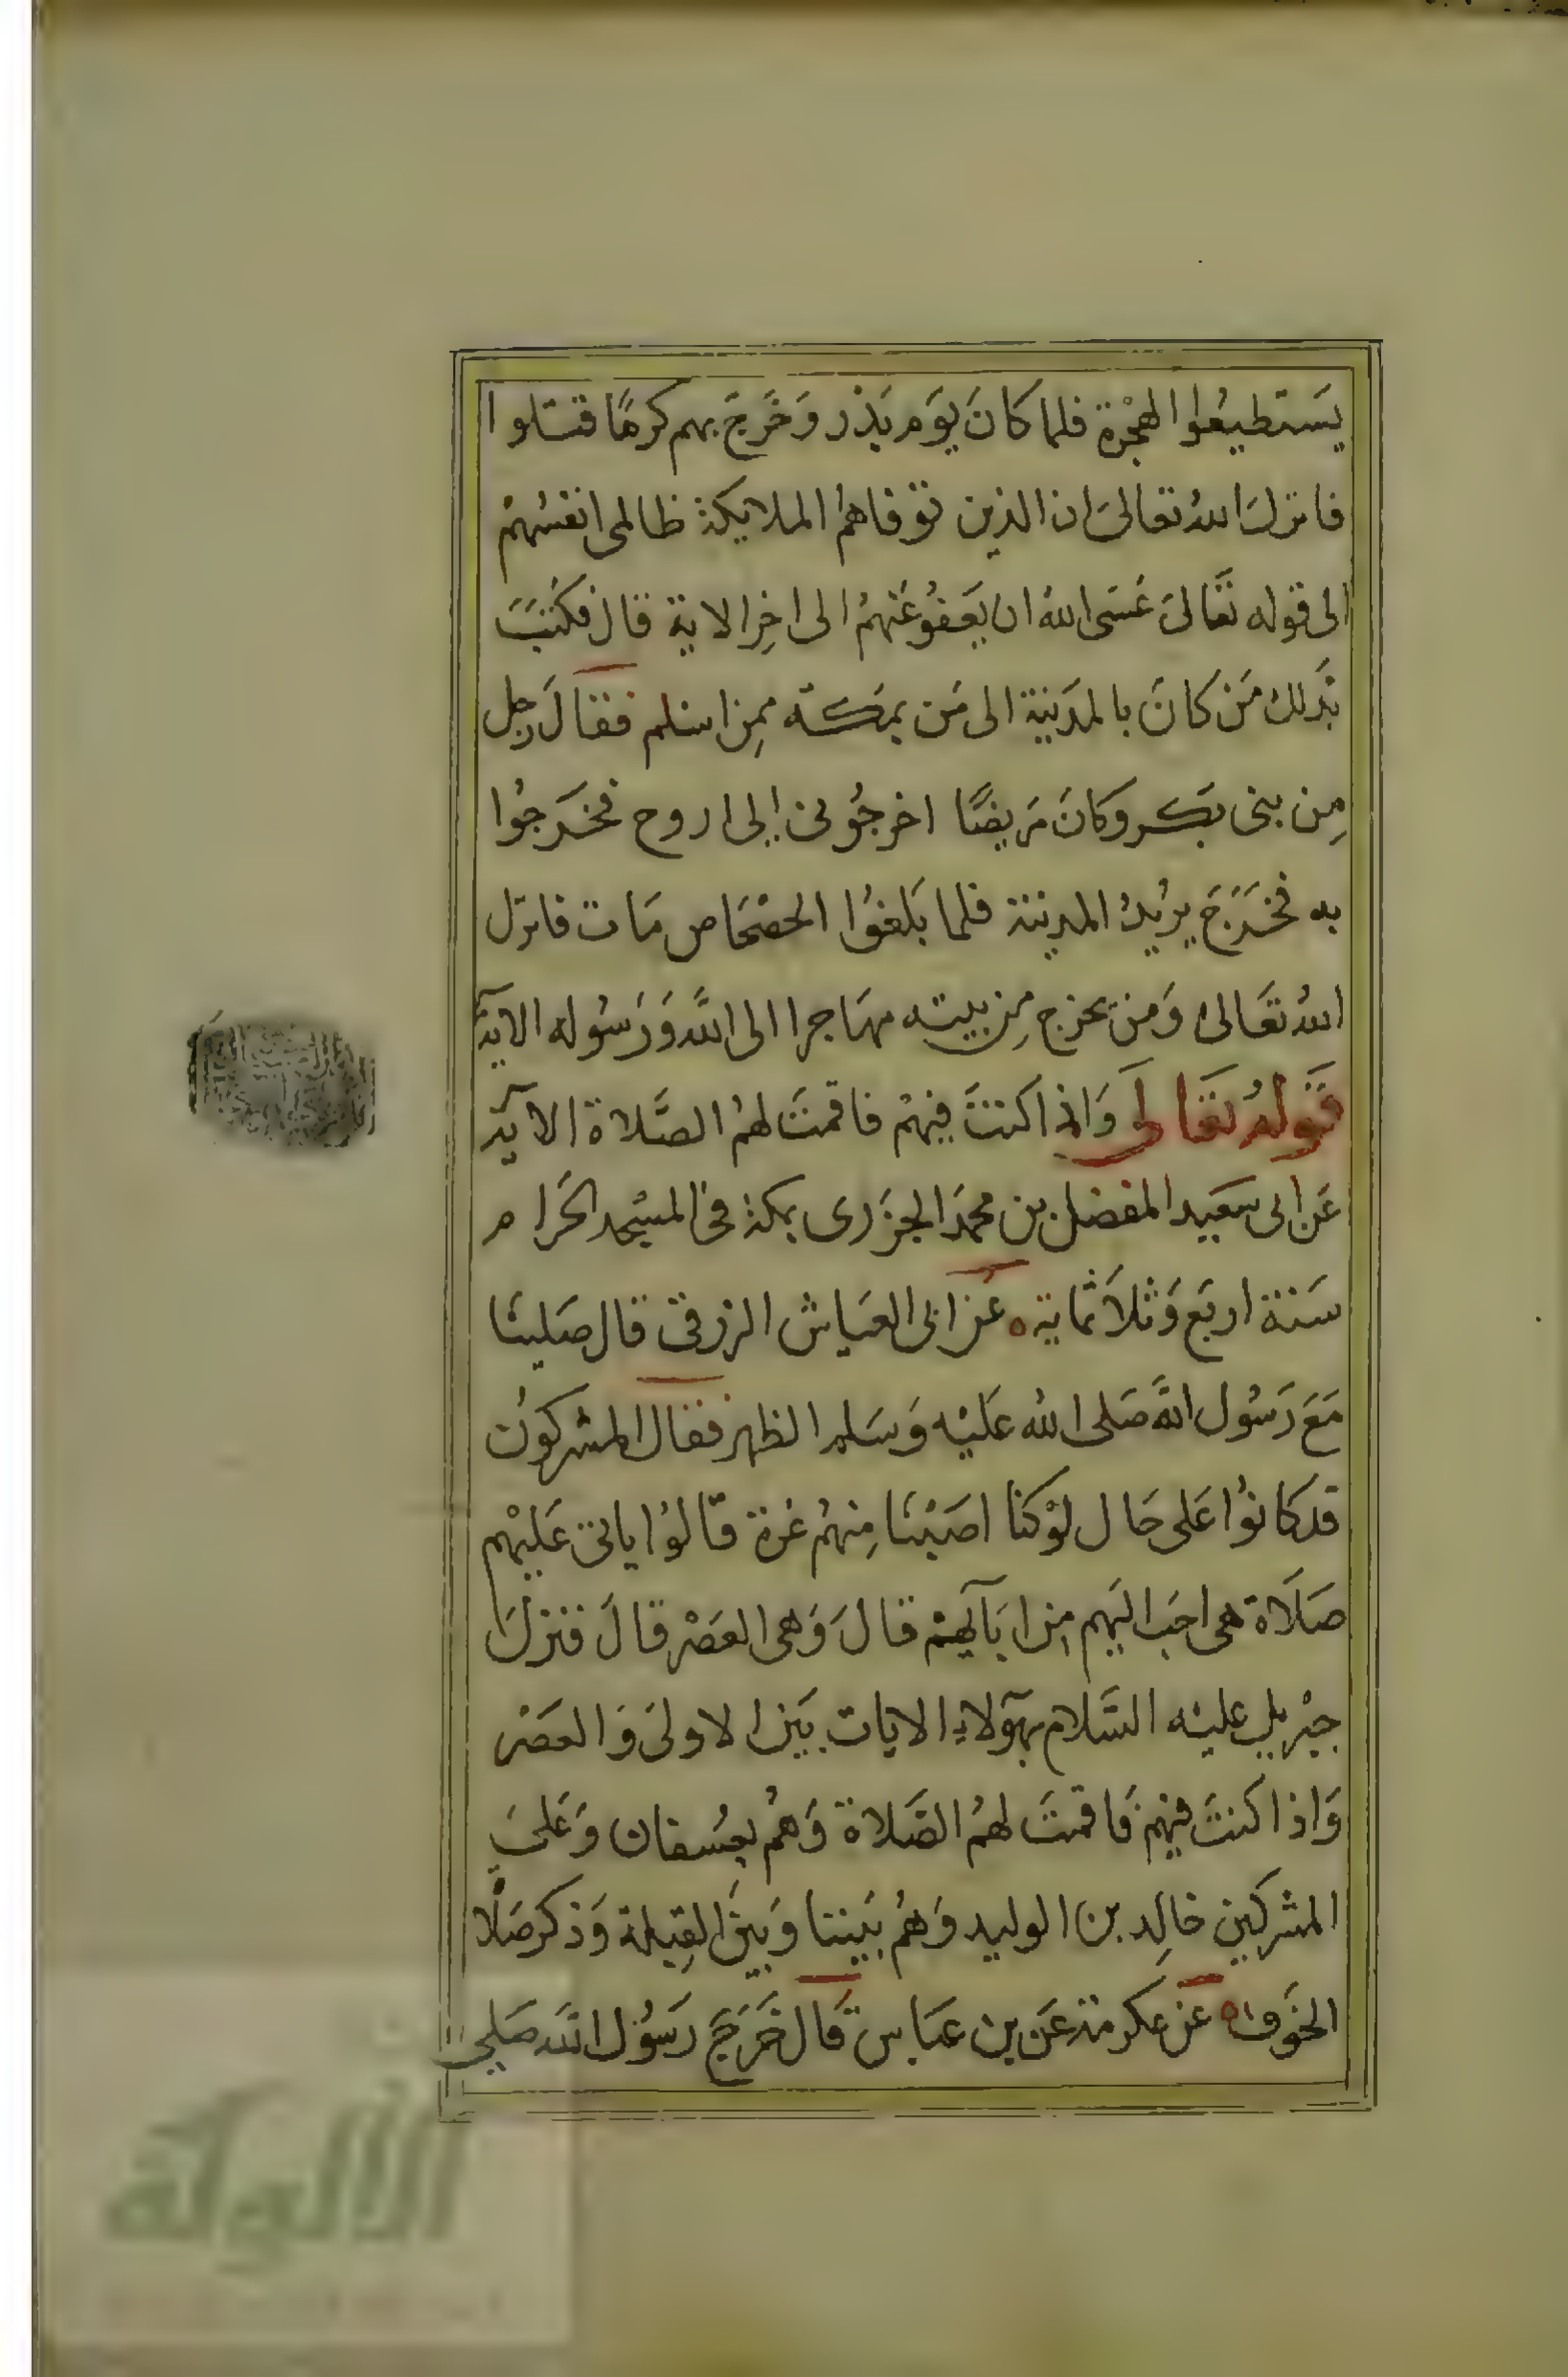 يَستطيعُوا الهجْرة فلما كانَ يوَم بَدْر وَخَرجَ بهم كرهًا قتلوا
فانزلَ اللهُ تعالىَ ان الذين توفاهم الملايكة ظالمى انفسُهمْ
الى قوله تعَالىَ عَسَى اللهُ ان يَعفُو عَنهمُ الى اخِر الاية قال فكتبَ
بذلك مَنْ كانَ بالمدَينة الى مَن بمَكة ممِن اسلم فقالَ رجل
مِن بنى بَكر وكانَ مَريضًا اخرجُونى الى اروح فخَرجُوا
به فخَرَجَ يريُدُ المدينة فلما بَلغوُا الحصْحَاص مَات فانزل
اللهُ تعَالى وَمَن يخرج مِن بيته مهَاجرا الى اللهَ وَرَسُوله الاية
قَولهُ تعَالىَ وَاذا كنتَ فيهمُ فاقمتَ لهمُ الصَّلاة الاية
عَن ابى سعَيد المفضل بن محمدَ الجزَرى بمكة فى المسْجد الحَرام
سَنة اربَع وَثلاَثماية ه عَن ابى العيَاش الزرقى قال صَليَنا
مَعَ رَسُول اللهَ صَلى اللهُ عَليْه وَسَلم الظهر فقال المشركوُن
قدَ كانوُا عَلى حَال لوْ كنا اصَبْنا مِنهمُ غرة قالوُا ياتى عَليْهم
صَلاَة هى احَب اليَهم مِن ابَآيهمْ قالَ وَهى العَصْر قالَ فنزلَ
جبْريل عليْه السَّلام بهَؤلاءِ الايات بَيَن الاولىَ وَالعَصْر
وَاذا كنتَ فيهمْ فَاقمتَ لهمُ الصَّلاة وَهُم بعسُفان وَعَلىَ
المشركين خالِد بن الوليد وَهمُ بَيننا وَبَين القِبلة وَذكر صَلاَة
الخوَف ه عَن عكرمة عَن بن عبَاس قَال خَرَجَ رَسُول اللهَ صَلى
الألوكة